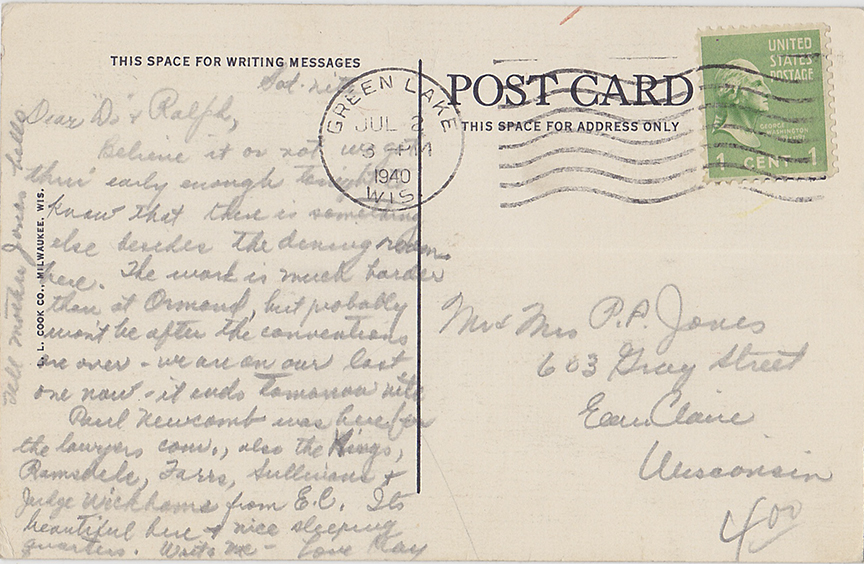 THIS SPACE FOR WRITING MESSAGES
Sat. nite
Dear "Do" & Ralph,
Believe it or not we got
thru' early enough tonight to
know that there is something
else besides the dining room
here. The work is much harder
than at Ormond, but probably
won't be after the conventions
are over - we are on our last
one now - it ends tomorrow nite
Paul Newcomb was here for
the lawyers conv., also the Kings,
Ramsdele, Farrs, Sullivans &
Judge Wickhams from E.C. Its
beautiful here & nice sleeping
quarters. Write me - Love Kay
Tell mother Jones hello
L. COOK CO., MILWAUKEE, WIS.
GREEN LAKE
JUL 2
3 PM
1940
WIS.
POST CARD
THIS SPACE FOR ADDRESS ONLY
UNITED
STATES
POSTAGE
GEORGE
WASHINGTON
1 CENT 1
Mr & Mrs P.A. Jones
603 Gray Street
Eau Claire
Wisconsin
4.00